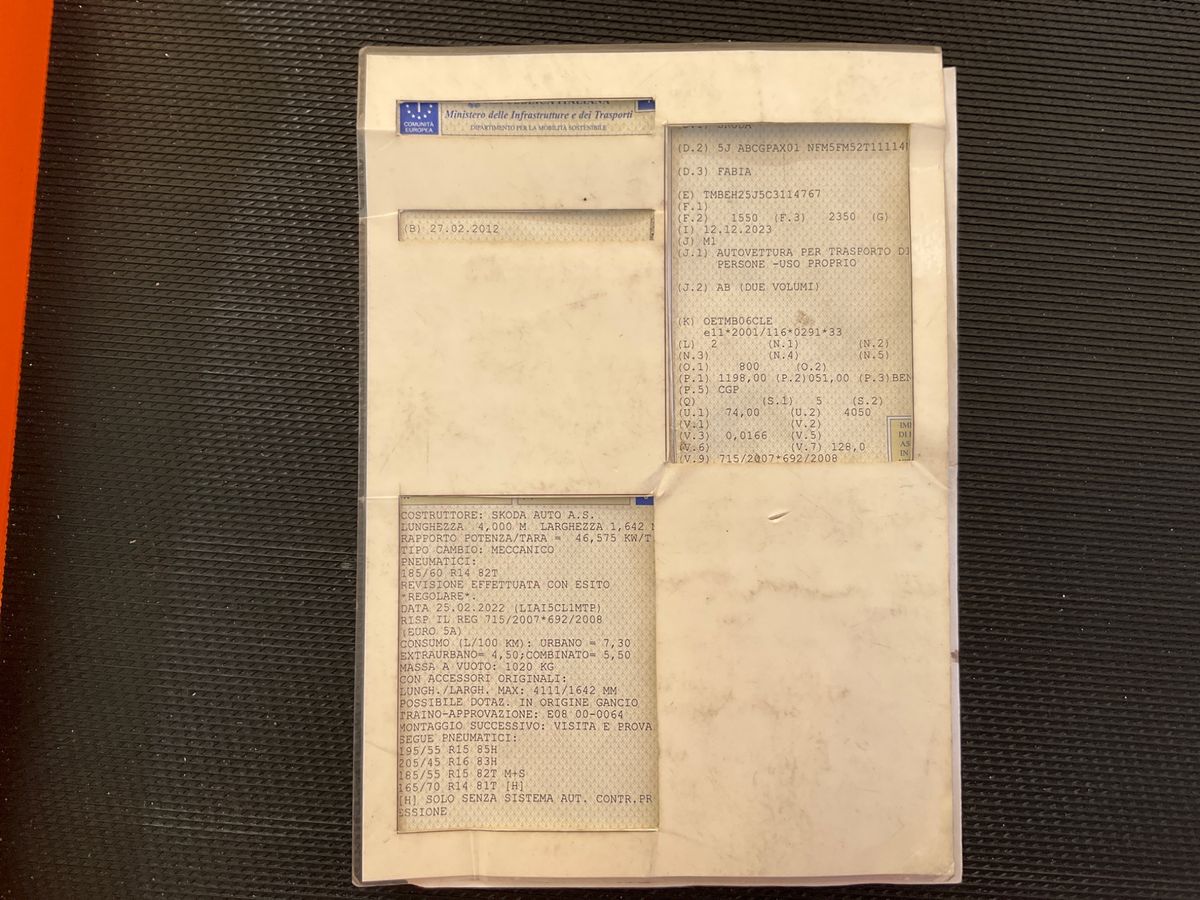 COMUNITÀ
EUROPEA
Ministero delle Infrastrutture e dei Trasporti
DIPARTIMENTO PER LA MOBILITÀ SOSTENIBILE
(B) 27.02.2012
SKODA
(D.2) 5J ABCGPAX01 NFM5FM52T11114
(D.3) FABIA
(E) TMBEH25J5C3114767
(F.1)
(F.2) 1550 (F.3) 2350 (G)
(I) 12.12.2023
(J) M1
(J.1) AUTOVETTURA PER TRASPORTO DI
PERSONE -USO PROPRIO
(J.2) AB (DUE VOLUMI)
(K) OETMB06CLE
e11*2001/116*0291*33
(L) 2 (N.1) (N.2)
(N.3) (N.4) (N.5)
(O.1) 800 (O.2)
(P.1) 1198,00 (P.2)051,00 (P.3)BEN
(P.5) CGP
(Q) (S.1) 5 (S.2)
(U.1) 74,00 (U.2) 4050
(V.1) (V.2)
(V.3) 0,0166 (V.5)
(V.6) (V.7) 128,0
(V.9) 715/2007*692/2008
COSTRUTTORE: SKODA AUTO A.S.
LUNGHEZZA 4,000 M LARGHEZZA 1,642
RAPPORTO POTENZA/TARA = 46,575 KW/T
TIPO CAMBIO: MECCANICO
PNEUMATICI:
185/60 R14 82T
REVISIONE EFFETTUATA CON ESITO
*REGOLARE*.
DATA 25.02.2022 (LIAI5CL1MTP)
RISP IL REG 715/2007*692/2008
(EURO 5A)
CONSUMO (L/100 KM): URBANO = 7,30
EXTRAURBANO= 4,50;COMBINATO= 5,50
MASSA A VUOTO: 1020 KG
CON ACCESSORI ORIGINALI:
LUNGH./LARGH. MAX: 4111/1642 MM
POSSIBILE DOTAZ. IN ORIGINE GANCIO
TRAINO-APPROVAZIONE: E08 00-0064
MONTAGGIO SUCCESSIVO: VISITA E PROVA
SEGUE PNEUMATICI:
195/55 R15 85H
205/45 R16 83H
185/55 R15 82T M+S
165/70 R14 81T [H]
[H] SOLO SENZA SISTEMA AUT. CONTR.PR
ESSIONE